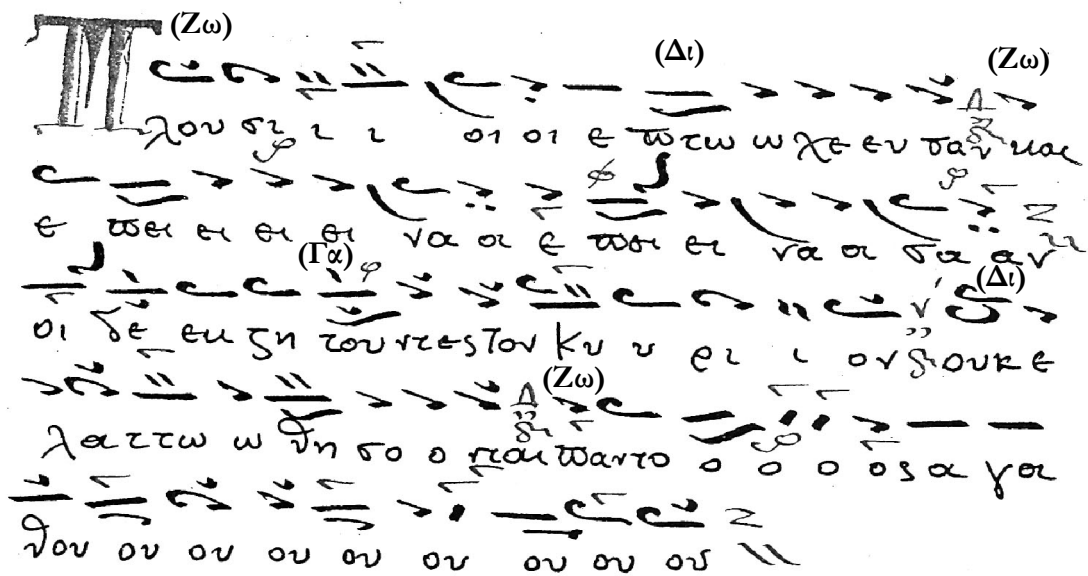 Π (Ζω) (Δι) (Ζω)
λου σι ι ι οι οι ε πτω ω χε ευ σαν και
ε πει ει ει ει να α ε πει ει να α σα αν
(Γα) (Δι)
οι δε εκ ζη του ντες τον Κυ υ ρι ι ον ουκ ε
(Ζω)
λα ττω ω θη σο ο νται παντο ο ο ο ος α γα
θου ου ου ου ου ου ου ου ου